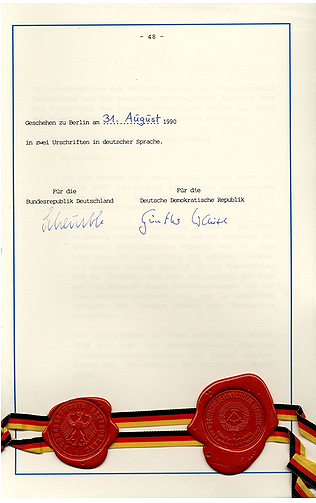 - 48 -
Geschehen zu Berlin am 31. August 1990
in zwei Urschriften in deutscher Sprache.
Für die Für die
Bundesrepublik Deutschland Deutsche Demokratische Republik
Schäuble Günther Krause